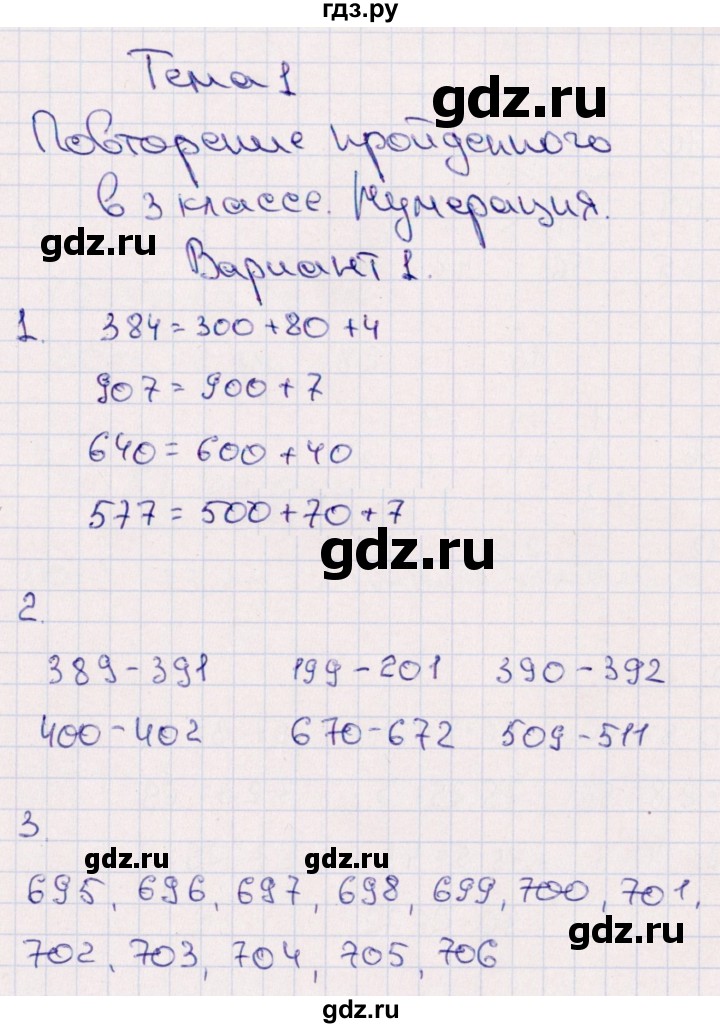 гдз.ру
Тема 1
gdz.ru
Повторение пройденного
в 3 классе. Нумерация.
gdz.ru
Вариант 1.
1. 384 = 300 + 80 + 4
907 = 900 + 7
640 = 600 + 40
577 = 500 + 70 + 7
gdz.ru
2.
389 - 391 199 - 201 390 - 392
400 - 402 670 - 672 509 - 511
3.
gdz.ru gdz.ru
695, 696, 697, 698, 699, 700, 701,
gdz.ru
702, 703, 704, 705, 706
gdz.ru